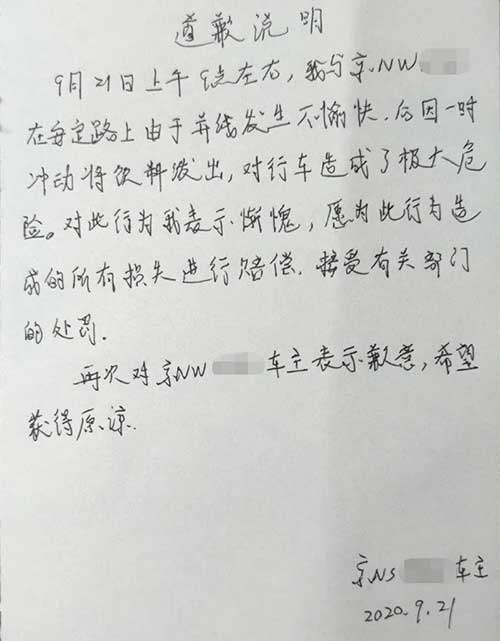 道歉说明
9月21日上午9点左右,我与京NW
在安定路上由于并线发生不愉快.后因一时
冲动将饮料泼出,对行车造成了极大危
险。对此行为我表示惭愧,愿为此行为造
成的所有损失进行赔偿.接受有关部门
的处罚.
再次对京NW 车主表示歉意,希望
获得原谅.
京NS 车主
2020.9.21